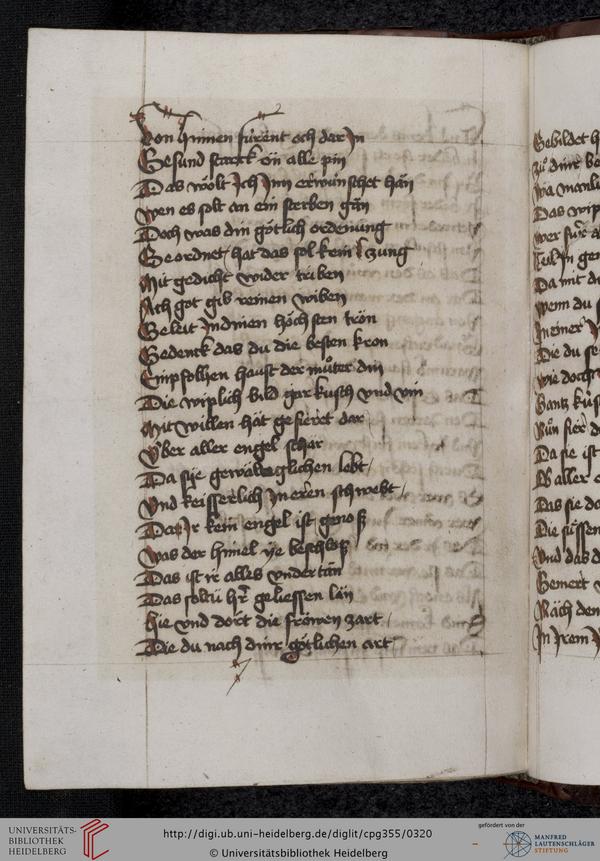 Von hinnen fürent och dar In
Gesund starck on alle pin
Das wölt Ich Im erwünschet hän
wen es solt an ein sterben gän
Doch was din götlich ordenung
Geordnet hat das sol kein zung
Mit gedicht wider triben
Ach got gib reinen wiben
Geleit In dinen höchsten trön
Gedenck das du die besten kron
Empfolhen haust der muoter din
Die wiplich bild gar kusch vnd vin
Mit willen hät gezieret dar
Vber aller engel schar
Da sye gewaltglichen lebt
Vnd keisserlich In eren schwebt
Das Ir kein engel ist genoß
was der himel ye beschloß
Das ist ir alles vndertän
Das soltu hr̄ geliessen län
hie vnd dort die fröwen zart
Die du nach diner götlichen art
Gebildet h
zuo diner
Das wip
wer für
Da mit di
wenn du
In einer
Die du se
wie doch
Gantz küs
Nün
Da sie ist
Ob aller
Das sie da
Die süssen
Vnd das d
Gemert
Näch den
In Irem
UNIVERSITÄTS-
BIBLIOTHEK
HEIDELBERG
http://digi.ub.uni-heidelberg.de/diglit/cpg355/0320
© Universitätsbibliothek Heidelberg
gefördert von der
MANFRED
LAUTENSCHLÄGER
STIFTUNG